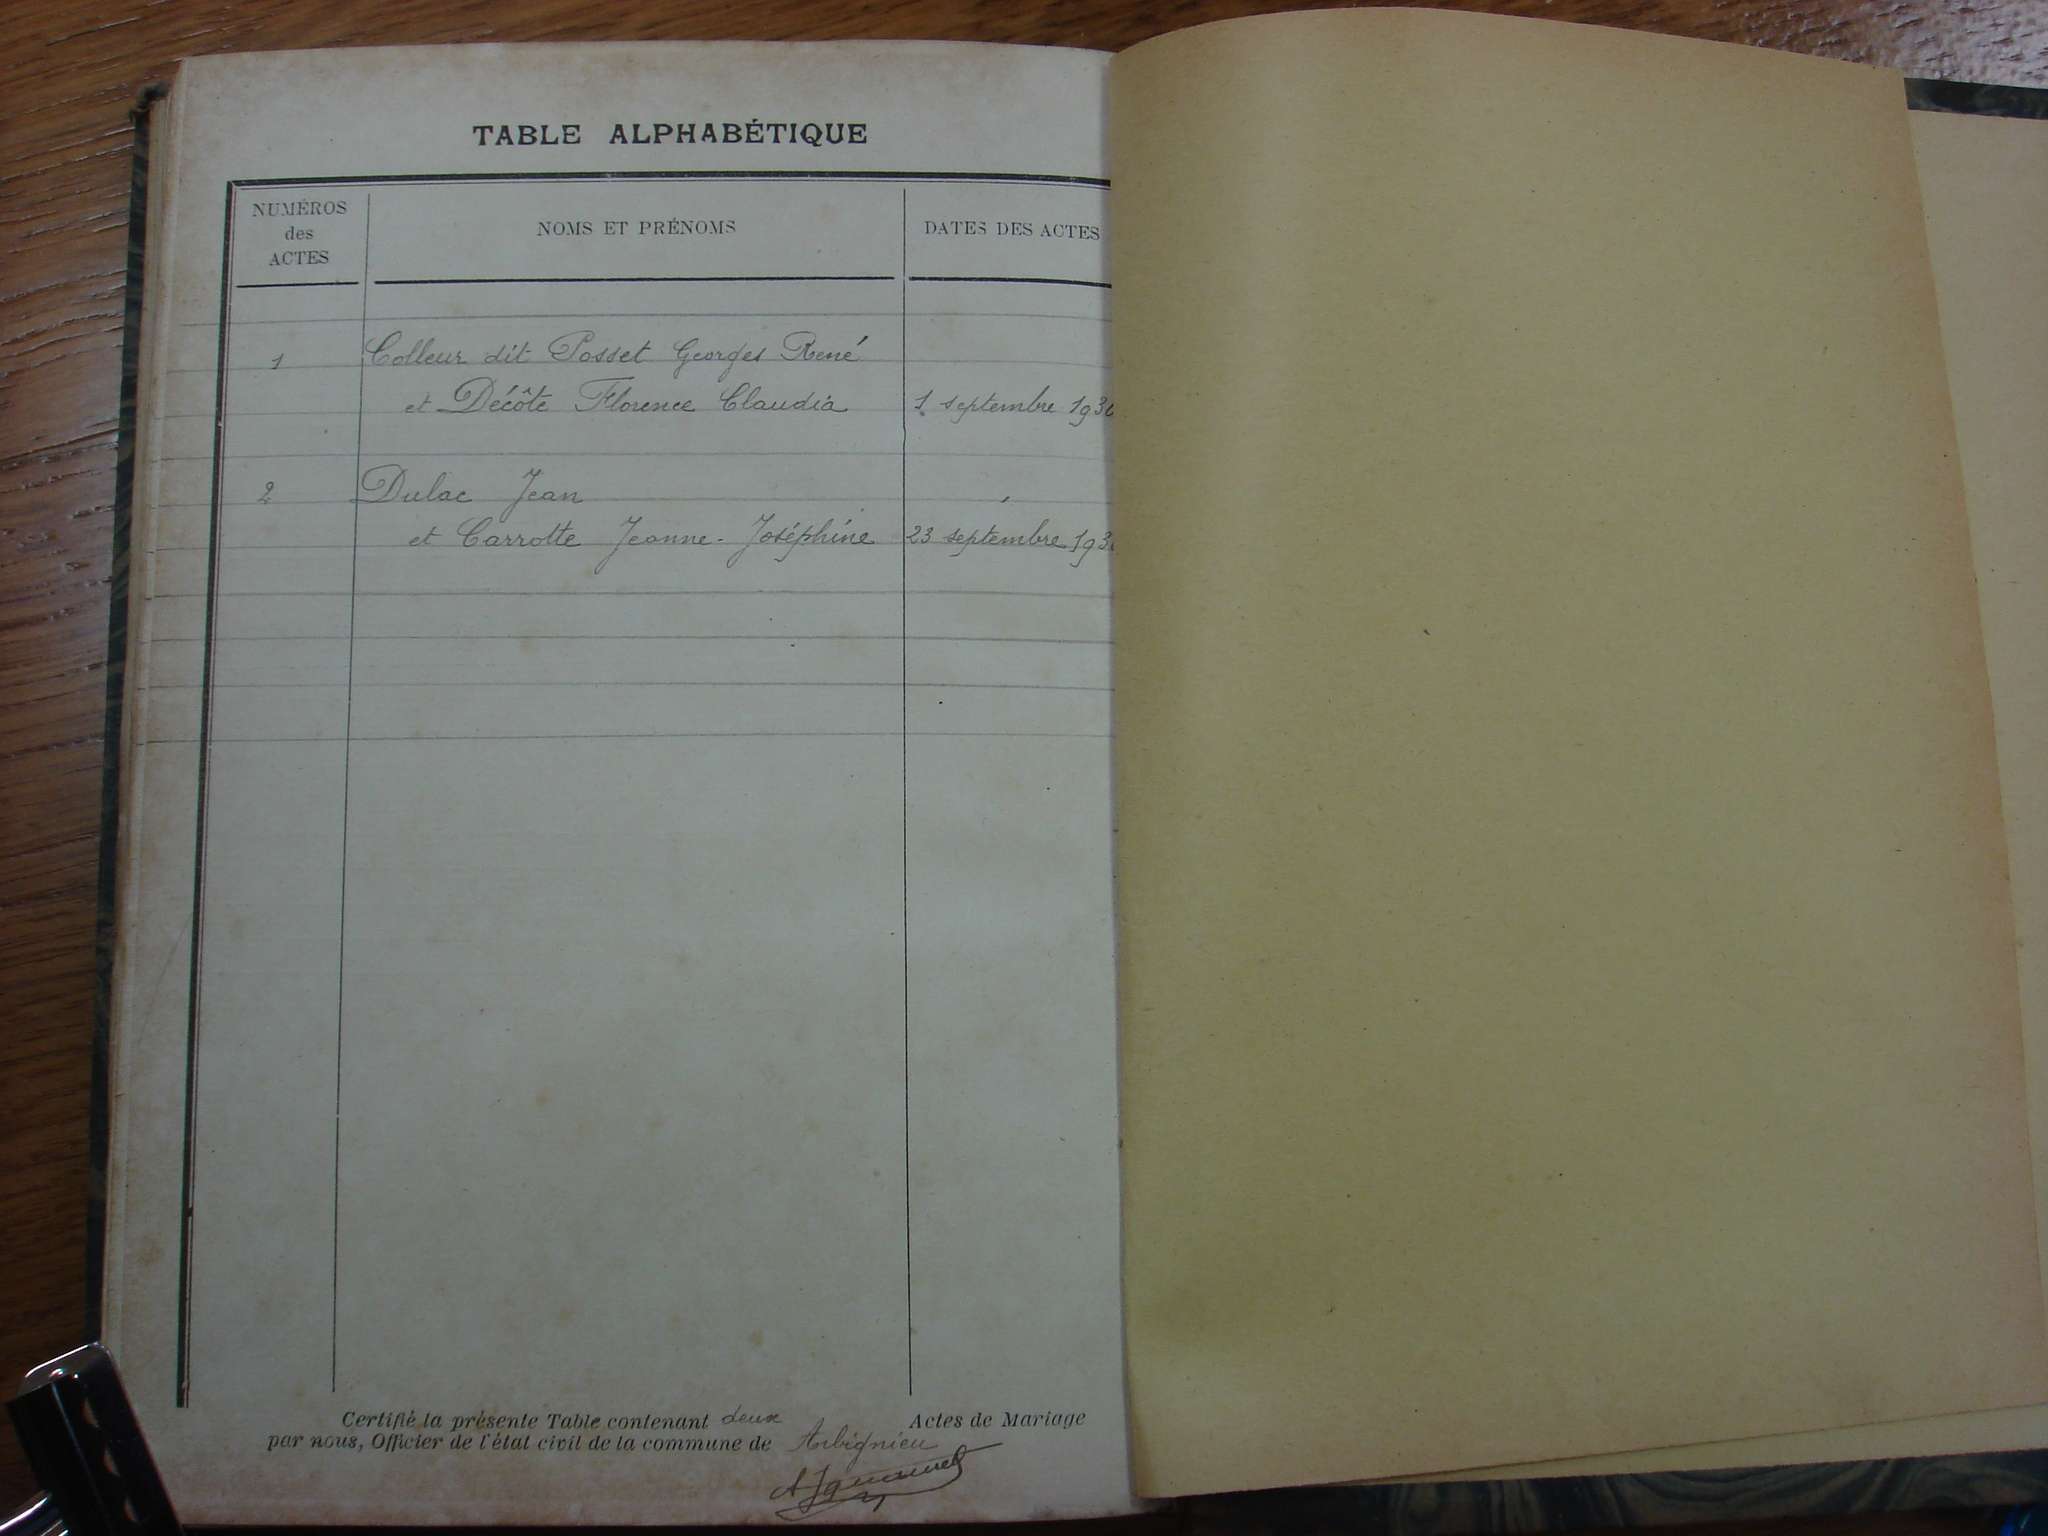 TABLE ALPHABÉTIQUE
NUMÉROS des ACTES
NOMS ET PRÉNOMS
DATES DES ACTES
1 Colleur dit Posset Georges René
et Décôte Florence Claudia 1 septembre 193
2 Dulac Jean
et Carrotte Jeanne-Joséphine 23 septembre 193
Certifié la présente Table contenant deux Actes de Mariage
par nous, Officier de l'état civil de la commune de Arbignieu